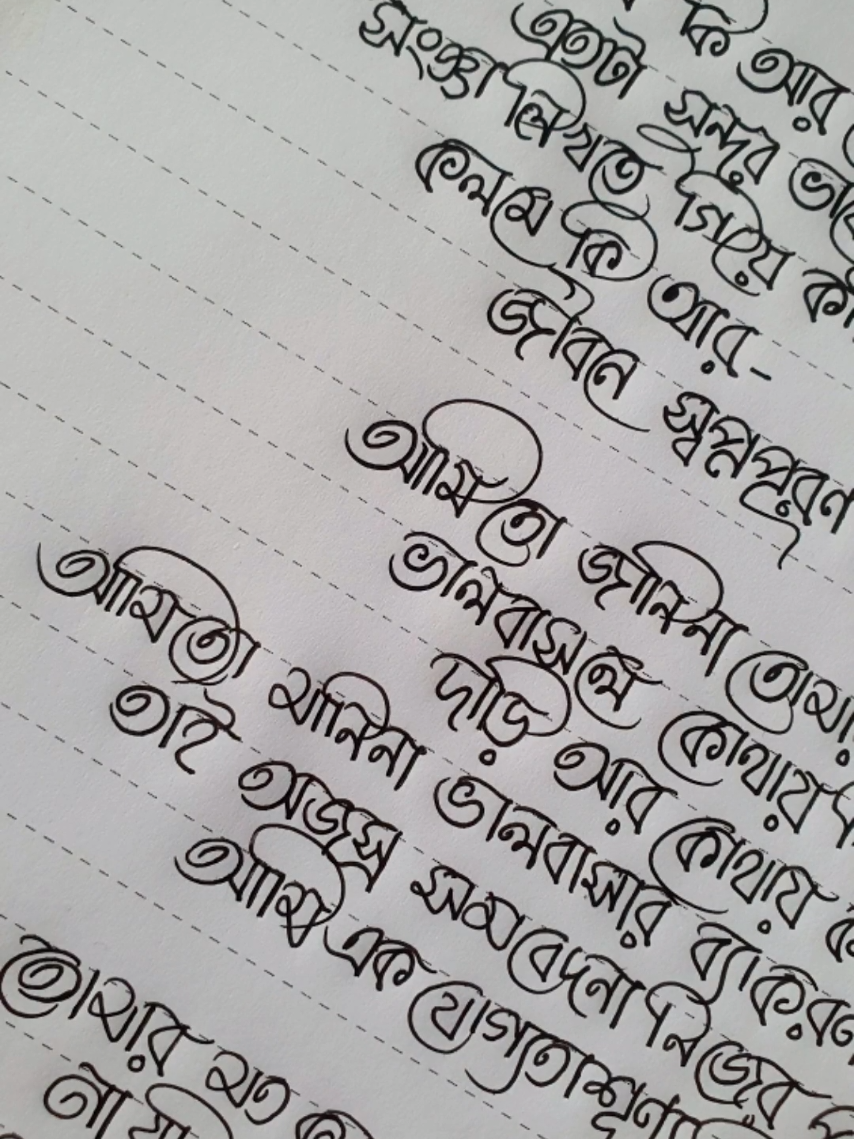 কি আর
এতটা সুন্দর ভাবে
সংজ্ঞা লিখতে গিয়ে
কলমে কি আর-
জীবনে স্বপ্নপূরণ
আমি তো জানিনা
ভালবাসলে কোথায়
দাড়ি আর কোথায়
আমিতো মানিনা ভালবাসার ব্যাকরণ
তাই অজস্র সমবেদনা নিজের
আমি এক যোগ্যতাশূণ্য
তোমার মত